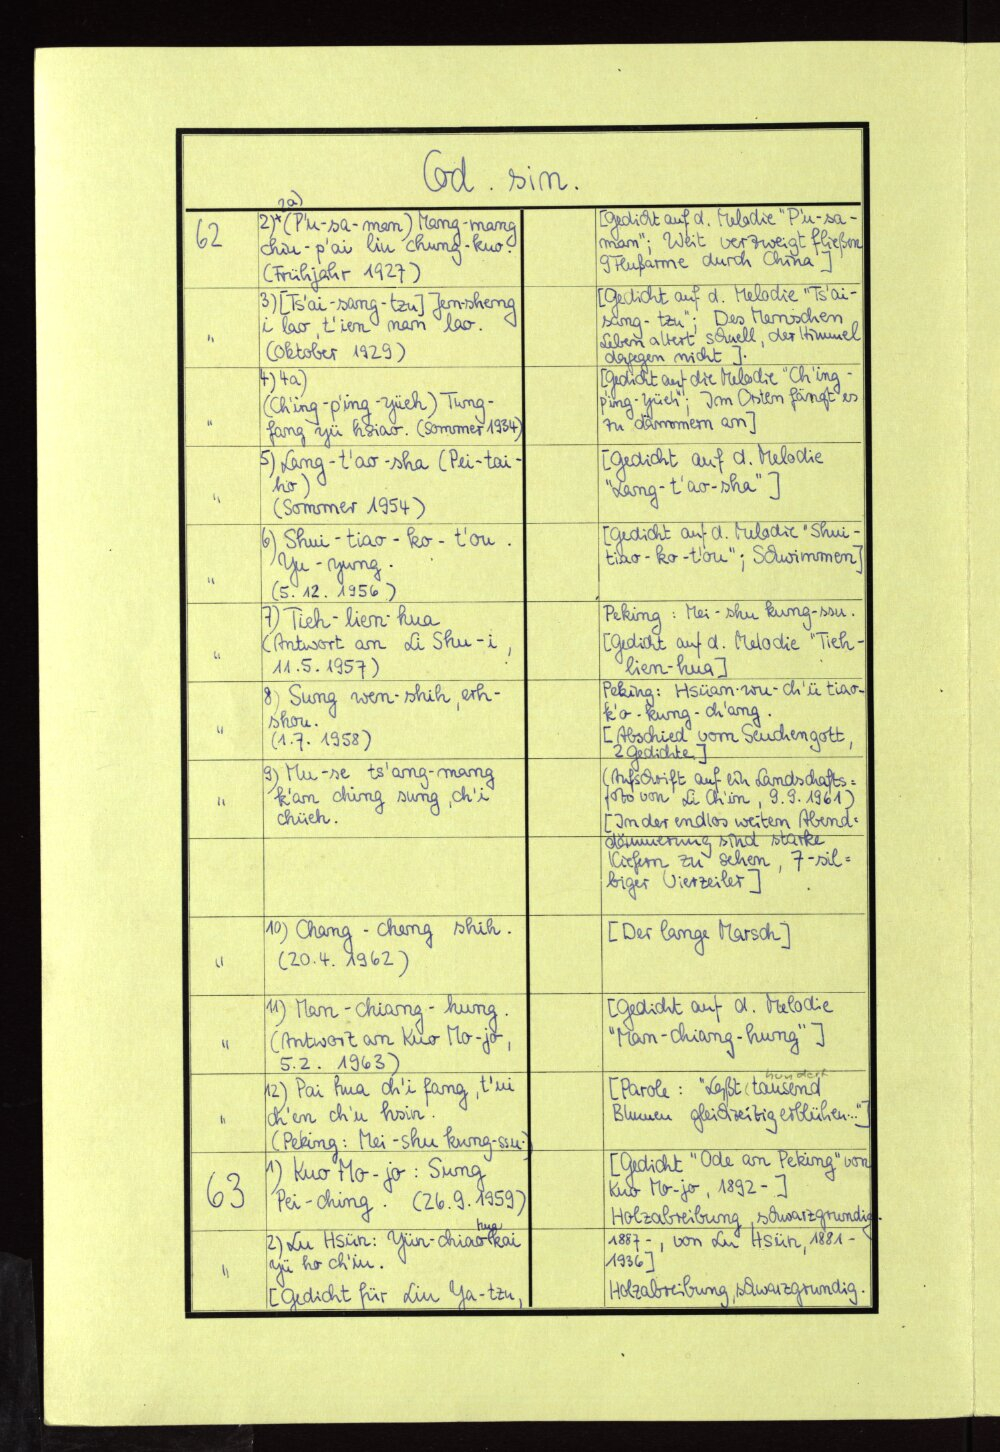 Cod. sin.
2a)
62
2)* (P'u-sa-man) Mang-mang
chiu-p'ai liu chung-kuo.
(Frühjahr 1927)
[Gedicht auf d. Melodie "P'u-sa-
man"; Weit verzweigt fließen
9 Flußarme durch China"]
"
3) [Ts'ai-sang-tzu] Jen-sheng
i lao, t'ien nan lao.
(Oktober 1929)
[Gedicht auf d. Melodie "Ts'ai-
sang-tzu"; Des Menschen
Leben altert schnell, der Himmel
dagegen nicht].
"
4) 4a)
(Ch'ing-p'ing-yüeh) Tung-
fang yü hsiao. (Sommer 1934)
[Gedicht auf die Melodie "Ch'ing-
p'ing-yüeh"; Im Osten fängt es
zu dämmern an]
"
5) Lang-t'ao-sha (Pei-tai-
ho)
(Sommer 1954)
[Gedicht auf d. Melodie
"Lang-t'ao-sha"]
"
6) Shui-tiao-ko-t'ou.
Yu-yung.
(5.12.1956)
[Gedicht auf d. Melodie "Shui-
tiao-ko-t'ou"; Schwimmen]
"
7) Tieh-lien-hua
(Antwort an Li Shu-i,
11.5.1957)
Peking: Mei-shu kung-ssu.
[Gedicht auf d. Melodie "Tieh-
lien-hua]
"
8) Sung wen-shih, erh-
shou.
(1.7. 1958)
Peking: Hsüan-wu-ch'ü tiao-
k'o-kung-ch'ang.
[Abschied vom Seuchengott,
2 Gedichte]
"
9) Mu-se ts'ang-mang
k'an ching sung, ch'i
chüeh.
(Aufschrift auf ein Landschafts=
foto von Li Ch'in, 9.9.1961)
[In der endlos weiten Abend=
dämmerung sind starke
Kiefern zu sehen, 7-sil=
biger Vierzeiler]
"
10) Chang-cheng shih.
(20.4.1962)
[Der lange Marsch]
"
11) Man-chiang-hung.
(Antwort an Kuo Mo-jo,
5.2. 1963)
[Gedicht auf d. Melodie
"Man-chiang-hung"]
"
12) Pai hua ch'i fang, t'ui
ch'en ch'u hsin.
(Peking: Mei-shu kung-ssu.)
hundert
[Parole: "Laßt tausend
Blumen gleichzeitig erblühen..."]
63
1) Kuo Mo-jo: Sung
Pei-ching. (26.9.1959)
[Gedicht "Ode an Peking" von
Kuo Mo-jo, 1892- ]
Holzabreibung, schwarzgrundig.
"
hua
2) Lu Hsün: Yün-chiao kai
yü ho ch'iu.
[Gedicht für Liu Ya-tzu,
1887- , von Lu Hsün, 1881-
1936]
Holzabreibung, schwarzgrundig.